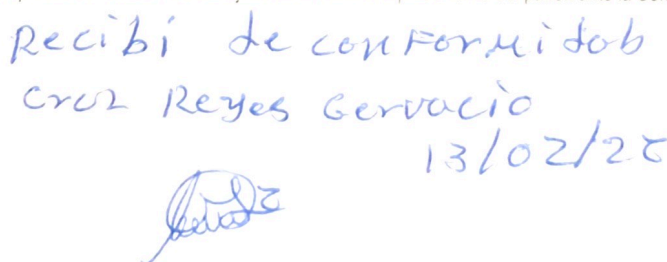 Recibi de conformidad
Cruz Reyes Gervacio
13/02/22